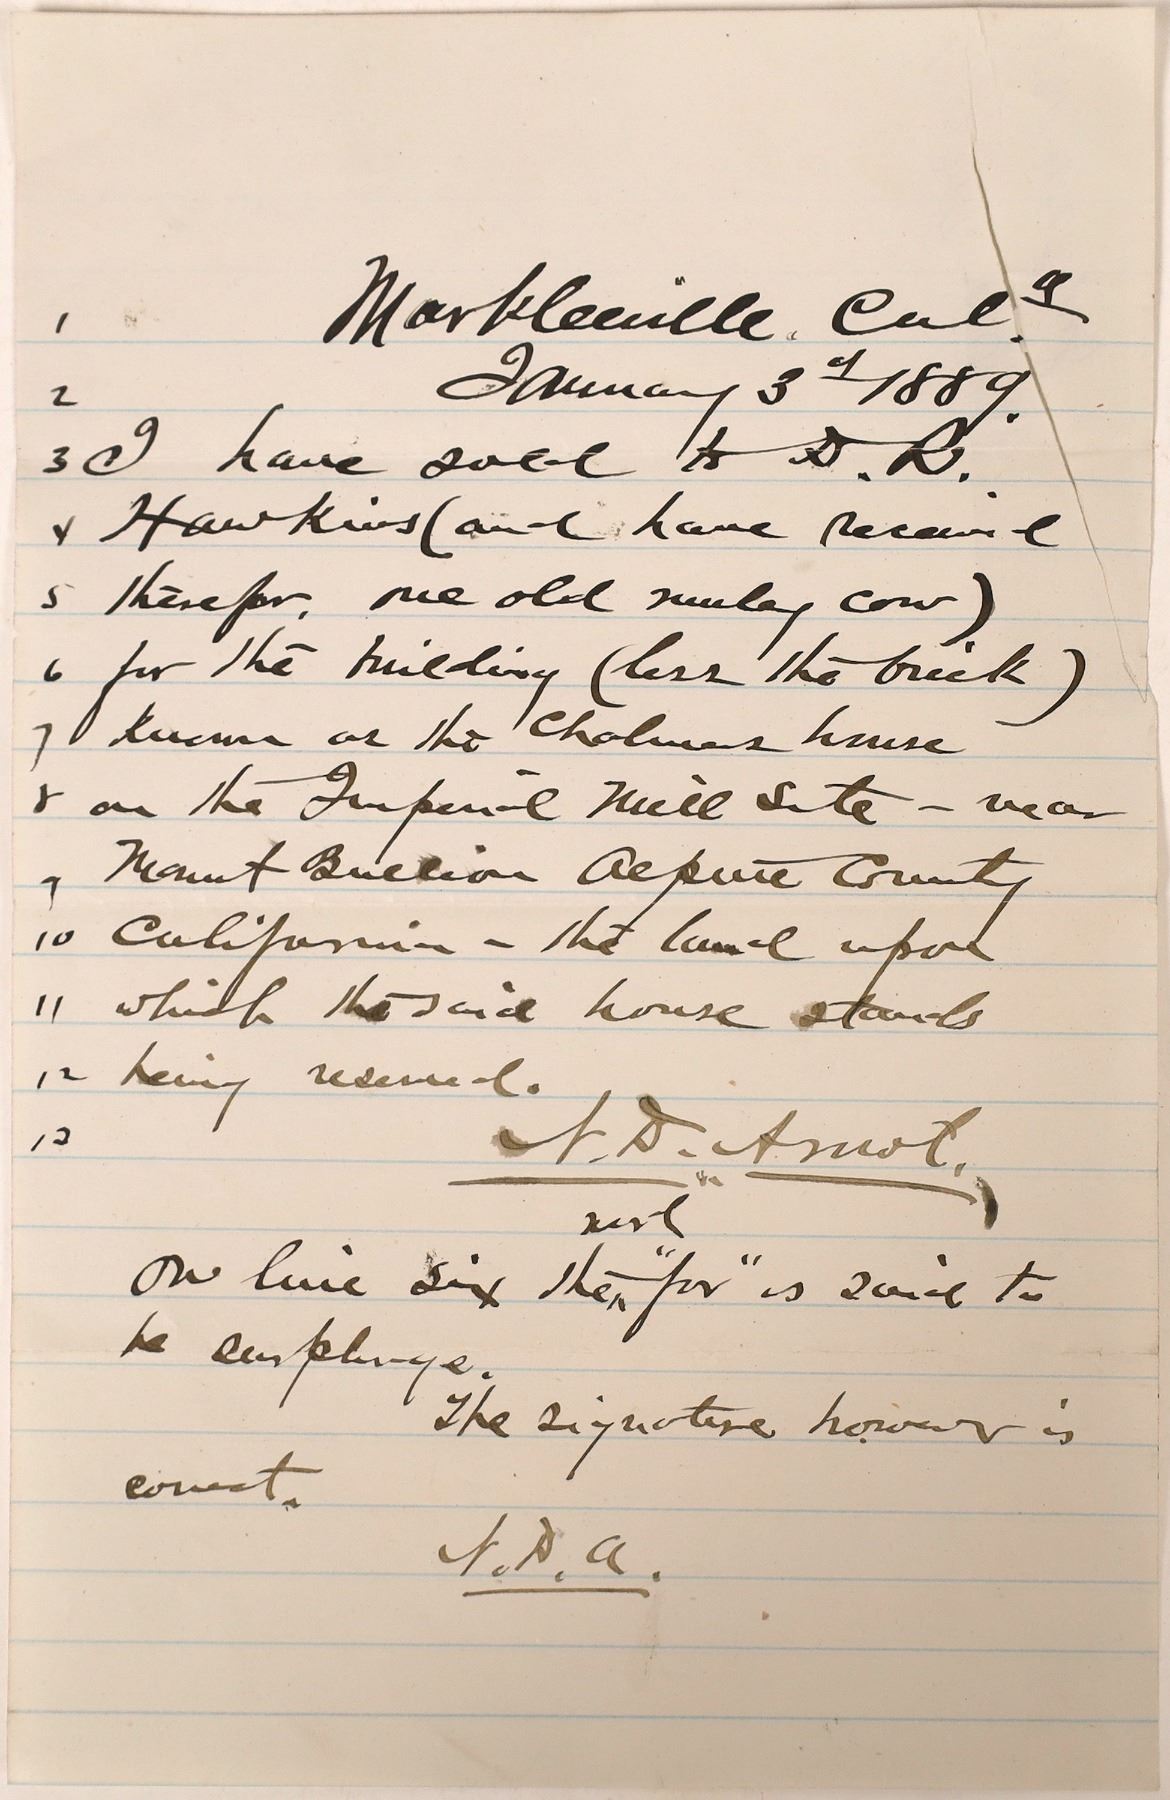 1 Markleeville. Cal.a
2 January 3d 1889.
3 I have sold to D. R.
4 Hawkins (and have received
5 therefor, one old muley cow)
6 for the building (less the brick)
7 known as the Chalmers house
8 on the Imperial Mill Site - near
9 Mount Bullion Alpine County
10 California - the land upon
11 which the said house stands
12 being reserved.
13 N. D. Arnot.
word
On line six the "for" is said to
be surplusage.
The signature however is
correct.
N. D. A.